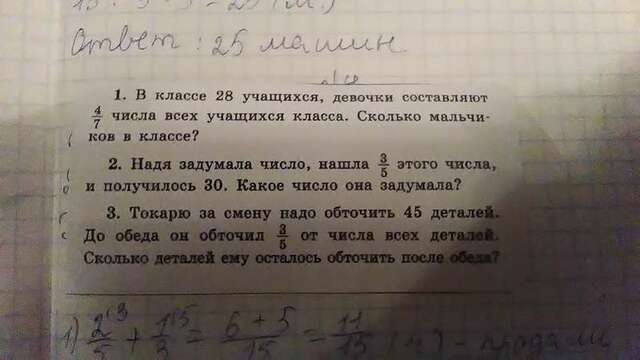 Ответ : 25 машин.
1. В классе 28 учащихся, девочки составляют
4/7 числа всех учащихся класса. Сколько мальчи-
ков в классе?
2. Надя задумала число, нашла 3/5 этого числа,
и получилось 30. Какое число она задумала?
3. Токарю за смену надо обточить 45 деталей.
До обеда он обточил 3/5 от числа всех деталей.
Сколько деталей ему осталось обточить после обеда?
1) 2/5 + 1/3 = 6 + 5/15 = 11/15